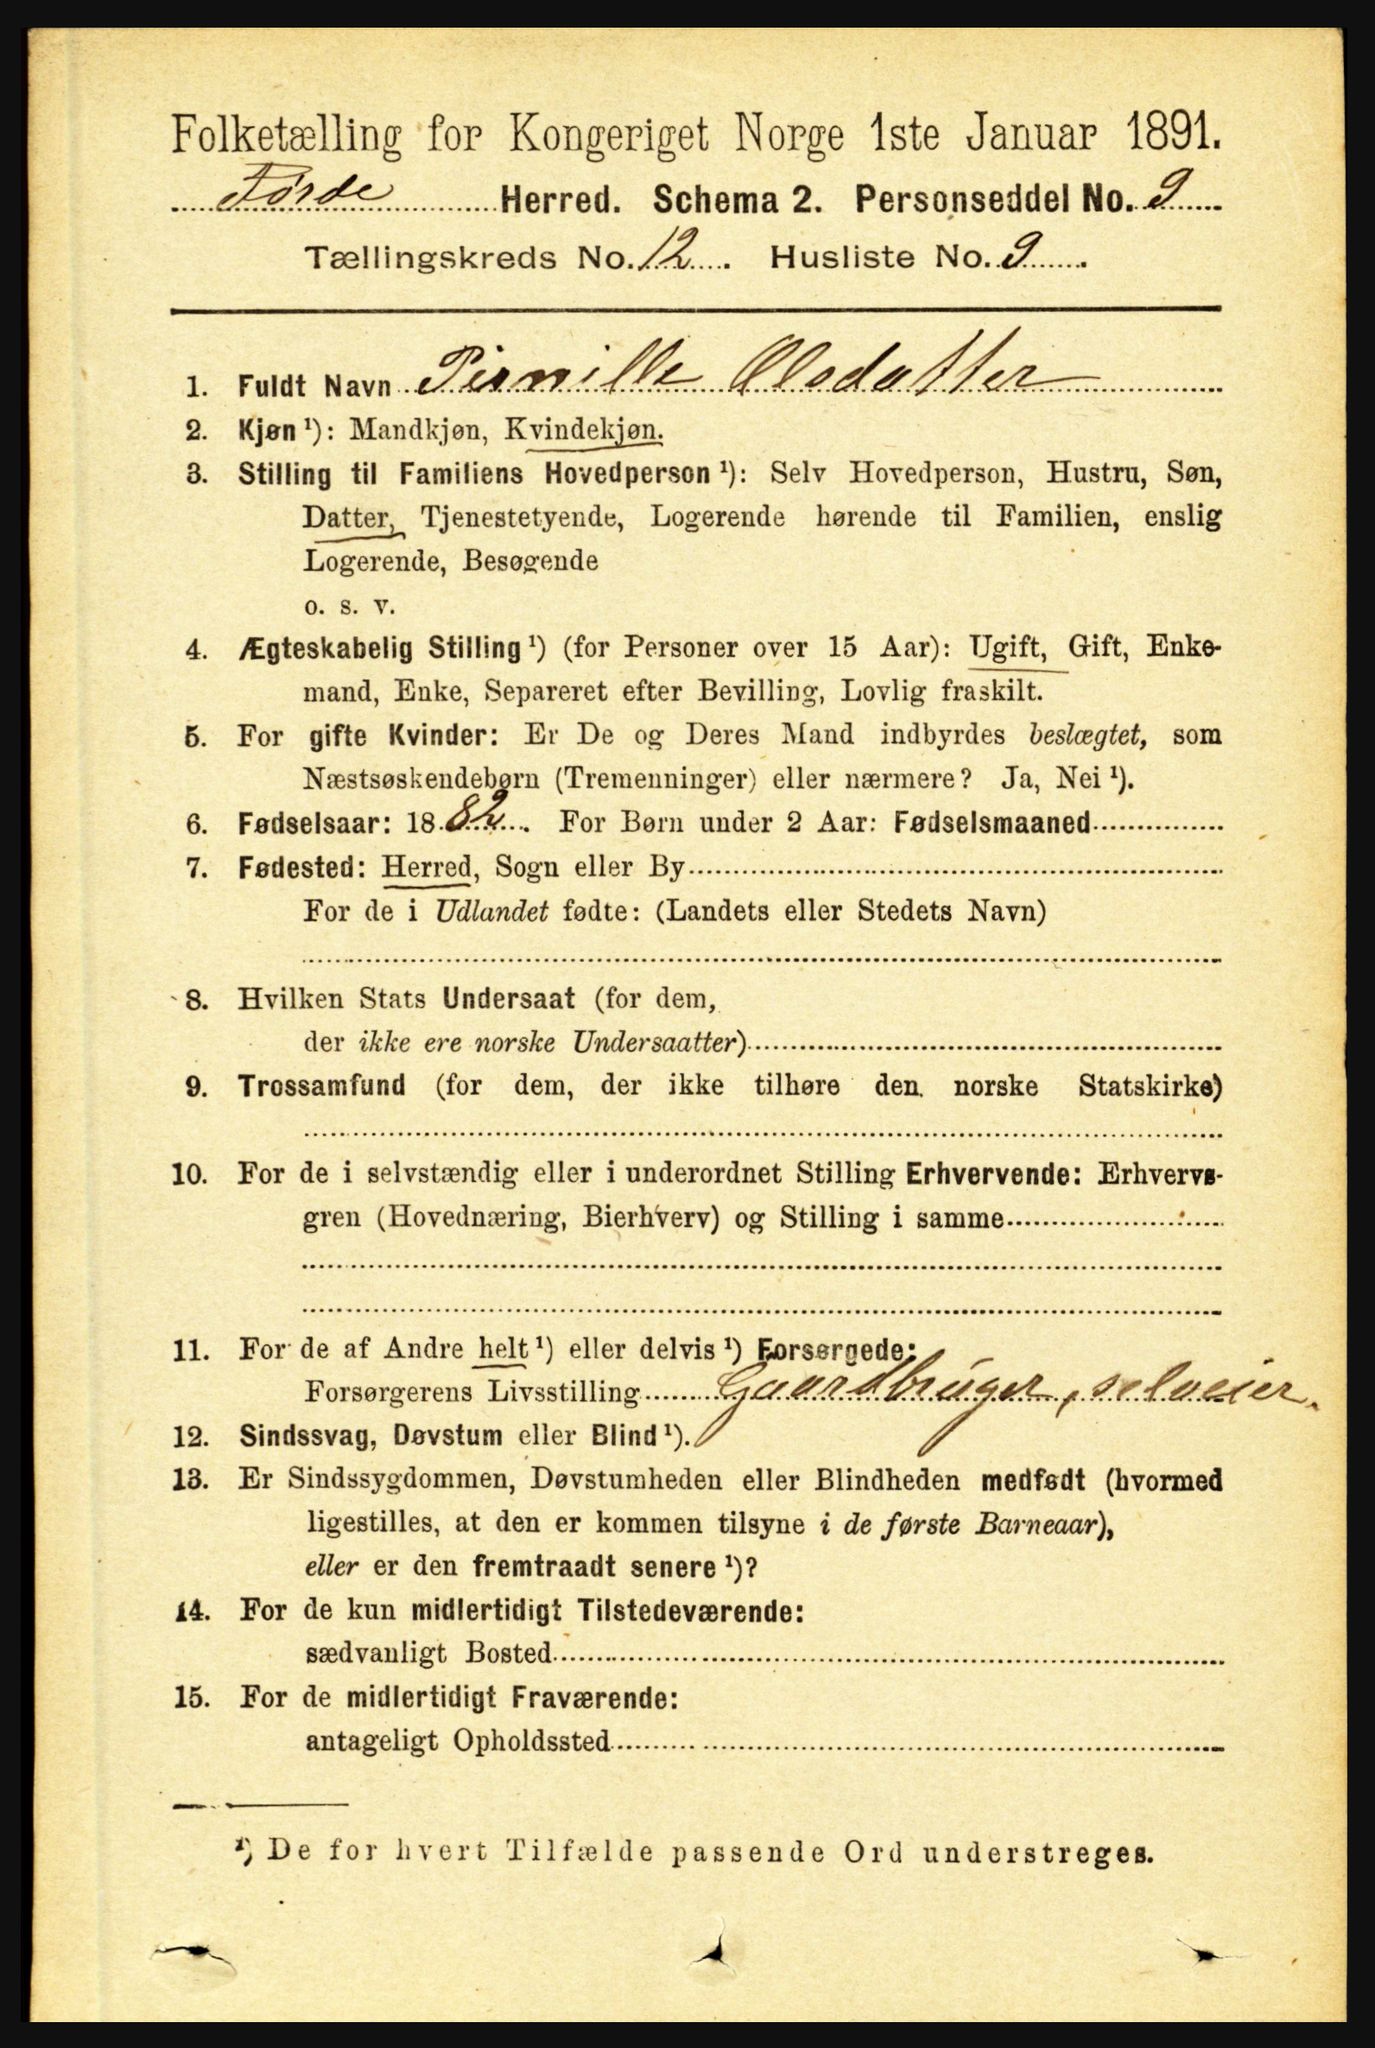 Folketælling for Kongeriget Norge 1ste Januar 1891.
Førde Herred. Schema 2. Personseddel No. 9
Tællingskreds No. 12. Husliste No. 9.
1. Fuldt Navn Pernille Olsdatter
2. Kjøn ¹): Mandkjøn, Kvindekjøn.
3. Stilling til Familiens Hovedperson ¹): Selv Hovedperson, Hustru, Søn,
Datter, Tjenestetyende, Logerende hørende til Familien, enslig
Logerende, Besøgende
o. s. v.
4. Ægteskabelig Stilling ¹) (for Personer over 15 Aar): Ugift, Gift, Enke-
mand, Enke, Separeret efter Bevilling, Lovlig fraskilt.
5. For gifte Kvinder: Er De og Deres Mand indbyrdes beslægtet, som
Næstsøskendebørn (Tremenninger) eller nærmere? Ja, Nei ¹).
6. Fødselsaar: 1882. For Børn under 2 Aar: Fødselsmaaned
7. Fødested: Herred, Sogn eller By
For de i Udlandet fødte: (Landets eller Stedets Navn)
8. Hvilken Stats Undersaat (for dem,
der ikke ere norske Undersaatter)
9. Trossamfund (for dem, der ikke tilhøre den norske Statskirke)
10. For de i selvstændig eller i underordnet Stilling Erhvervende: Erhvervs-
gren (Hovednæring, Bierhverv) og Stilling i samme
11. For de af Andre helt ¹) eller delvis ¹) Forsørgede:
Forsørgerens Livsstilling Gaardbruger, selveier.
12. Sindssvag, Døvstum eller Blind ¹).
13. Er Sindssygdommen, Døvstumheden eller Blindheden medfødt (hvormed
ligestilles, at den er kommen tilsyne i de første Barneaar),
eller er den fremtraadt senere ¹)?
14. For de kun midlertidigt Tilstedeværende:
sædvanligt Bosted
15. For de midlertidigt Fraværende:
antageligt Opholdssted
¹) De for hvert Tilfælde passende Ord understreges.